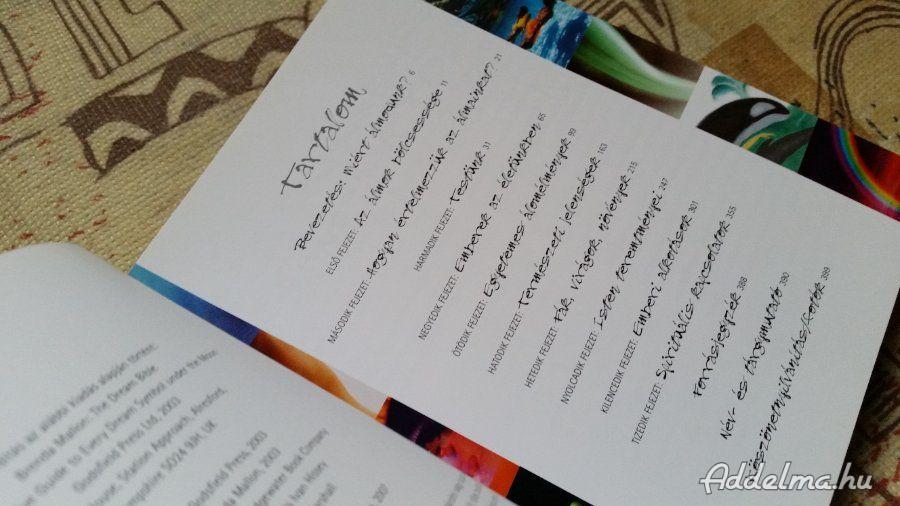 Tartalom
Bevezetés: Miért álmodunk? 6
ELSŐ FEJEZET: Az álmok bölcsessége 11
MÁSODIK FEJEZET: Hogyan értelmezzük az álmainkat? 21
HARMADIK FEJEZET: Testünk 31
NEGYEDIK FEJEZET: Emberek az életünkben 65
ÖTÖDIK FEJEZET: Egyetemes álomélmények 99
HATODIK FEJEZET: Természeti jelenségek 163
HETEDIK FEJEZET: Fák, virágok, növények 215
NYOLCADIK FEJEZET: Isten teremtményei 247
KILENCEDIK FEJEZET: Emberi alkotások 301
TIZEDIK FEJEZET: Spirituális kapcsolatok 355
Forrásjegyzék 388
Név- és tárgymutató 390
Köszönetnyilvánítás/Fotók 399
az alábbi kiadás alapján történt:
Brenda Mallon: The Dream Bible
Guide to Every Dream Symbol under the Moon
Godsfield Press Ltd, 2003
House, Station Approach, Alresford,
Hampshire SO24 9JH, UK
Godsfield Press 2003
Mallon, 2003
Book Company
2007
Addelma.hu